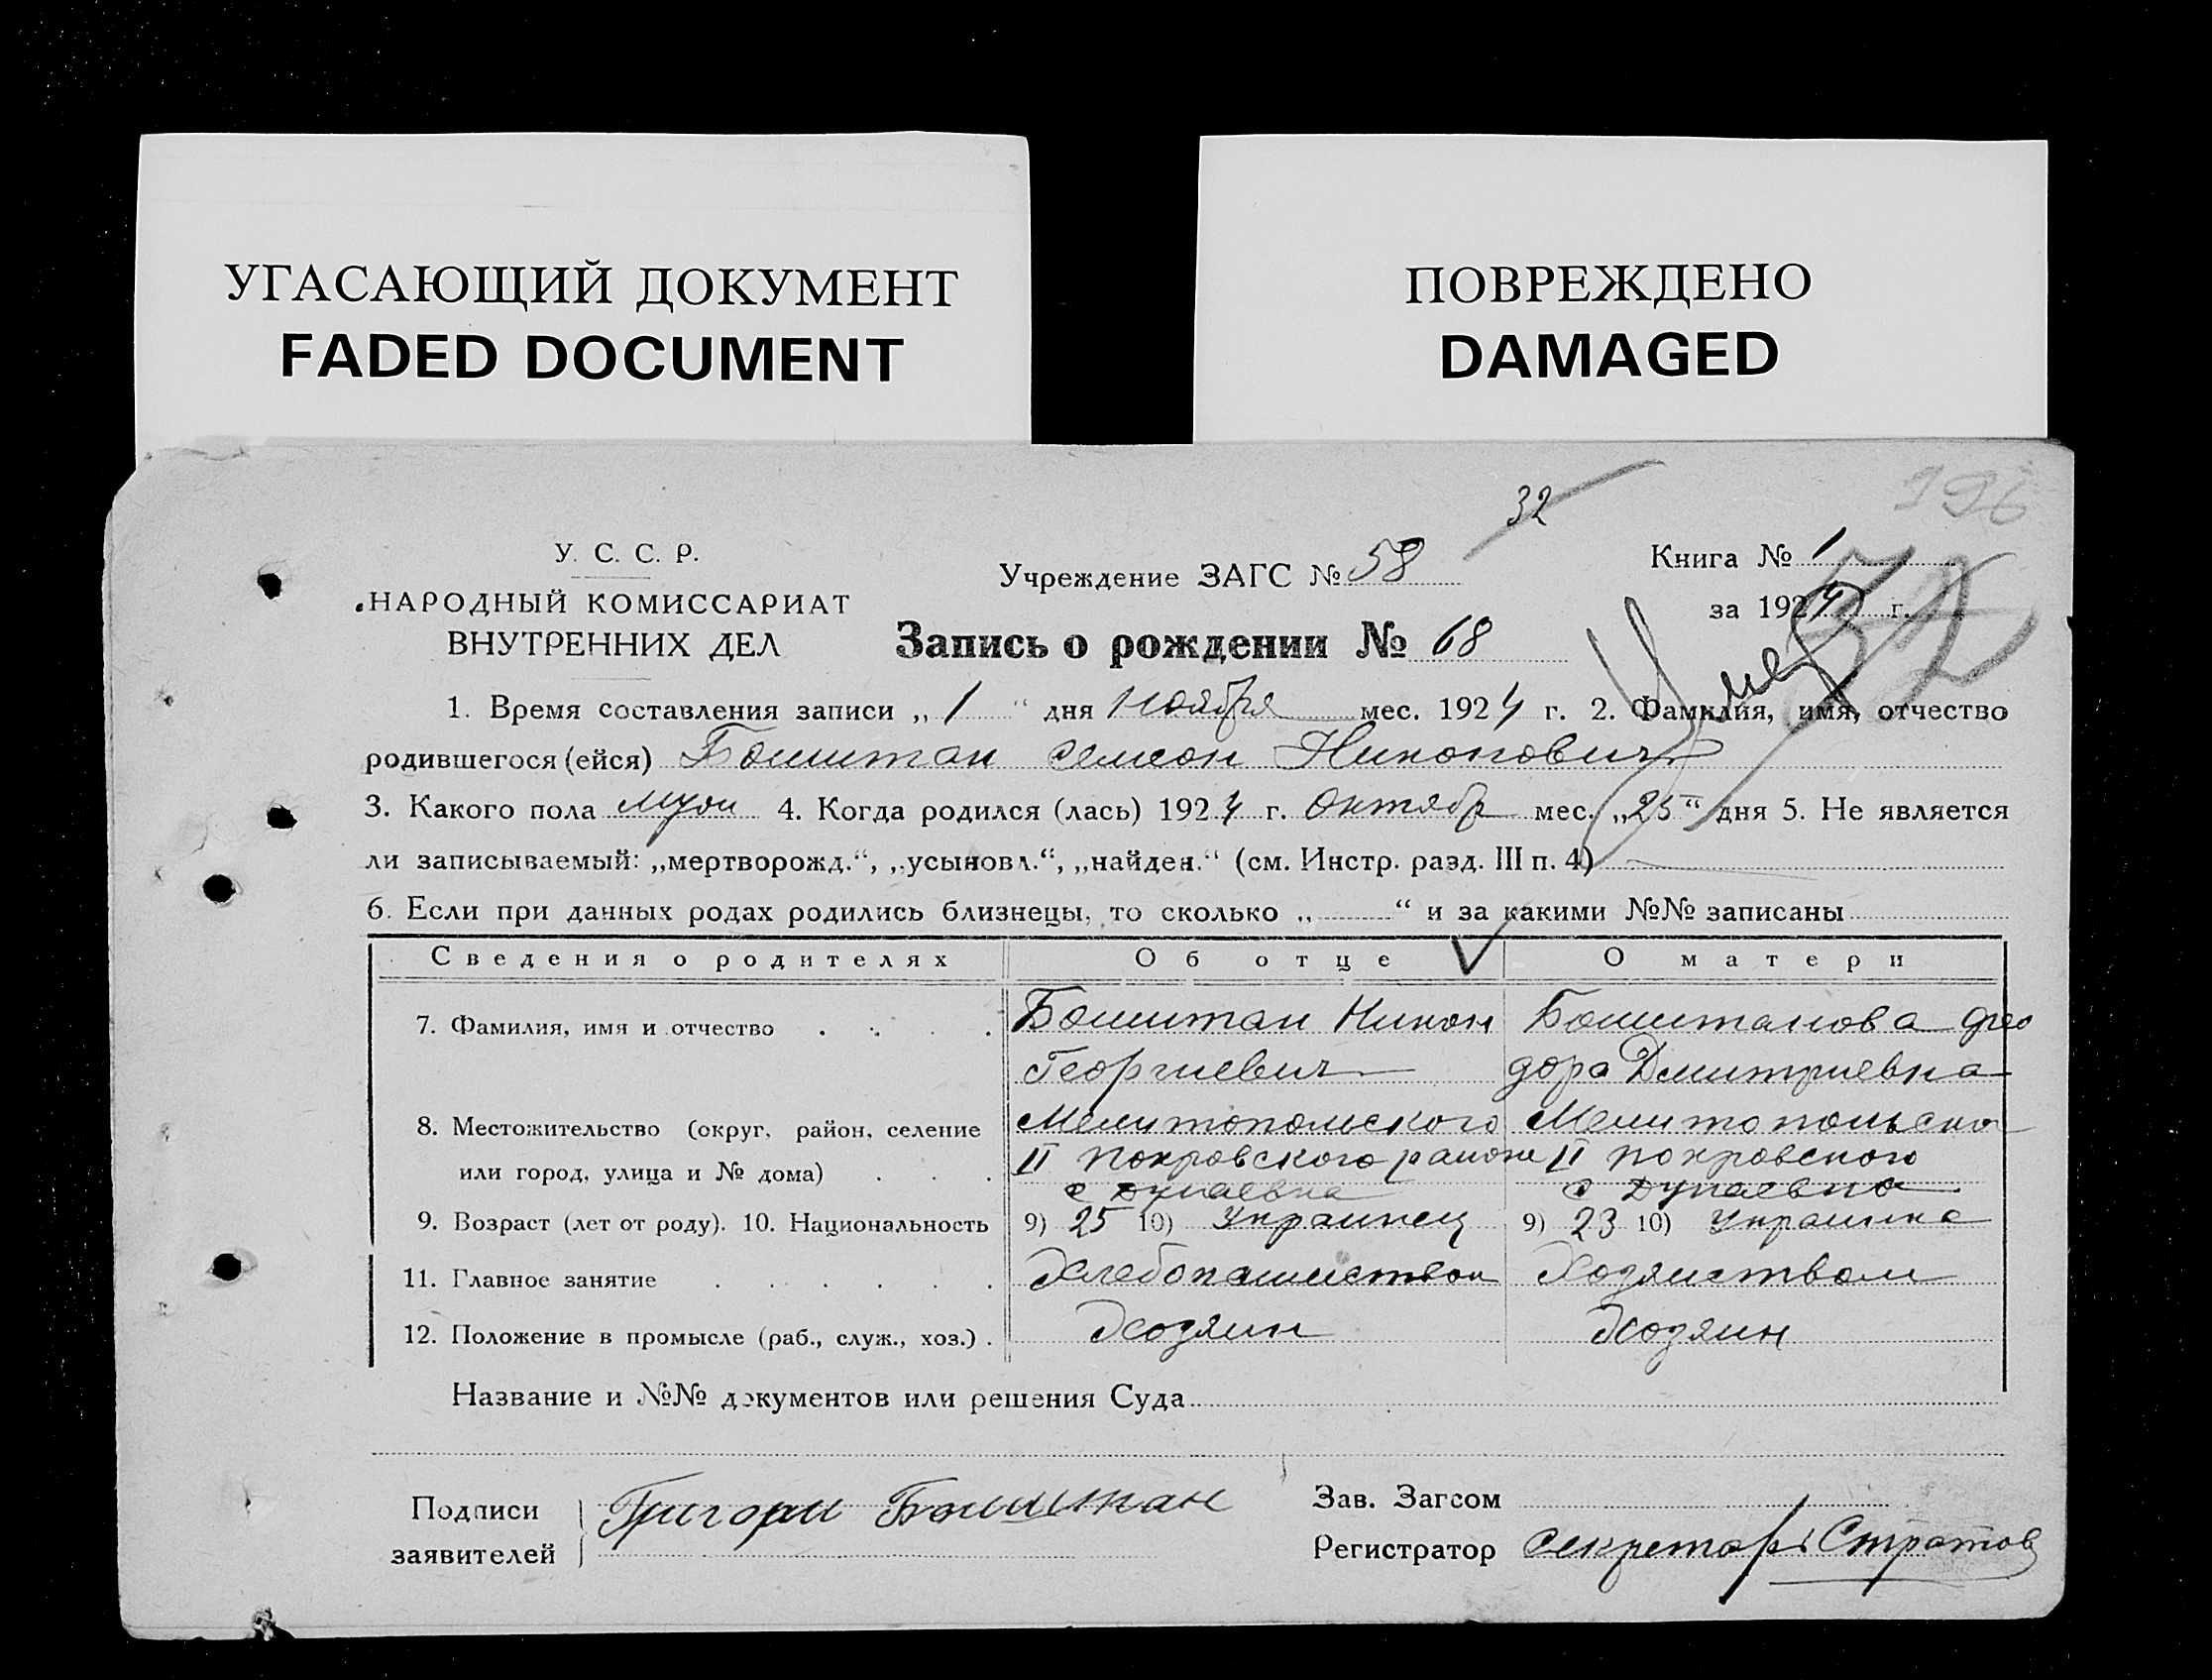 УГАСАЮЩИЙ ДОКУМЕНТ
FADED DOCUMENT
ПОВРЕЖДЕНО
DAMAGED
32
196
У. С. С. Р.
НАРОДНЫЙ КОМИССАРИАТ
ВНУТРЕННИХ ДЕЛ
Учреждение ЗАГС № 58
Книга № 1
за 1924 г.
52
Запись о рождении № 68
Умер
1. Время составления записи „1“ дня Ноября мес. 1924 г. 2. Фамилия, имя, отчество
родившегося (ейся) Боштан Семеон Никонович
3. Какого пола муж 4. Когда родился (лась) 1924 г. Октябр мес. „25“ дня 5. Не является
ли записываемый: „мертворожд.“, „усыновл.“, „найден.“ (см. Инстр. разд. III п. 4)
6. Если при данных родах родились близнецы, то сколько „ “ и за какими №№ записаны
Сведения о родителях Об отце О матери
7. Фамилия, имя и отчество . . . . Боштан Никон Боштанова Фео
Георгиевич дора Дмитриевна
8. Местожительство (округ, район, селение Мелитопольского Мелитопольско
или город, улица и № дома) . . . II Покровского района II Покровского
с Дунаевка с Дунаевка
9. Возраст (лет от роду). 10. Национальность 9) 25 10) Украинец 9) 23 10) Украинка
11. Главное занятие . . . . . . Хлебопашеством Хозяиством
12. Положение в промысле (раб., служ., хоз.) . Хозяин Хозяин
Название и №№ документов или решения Суда
Подписи
заявителей
Григори Боштан
Зав. Загсом
Регистратор секретарь Стратов